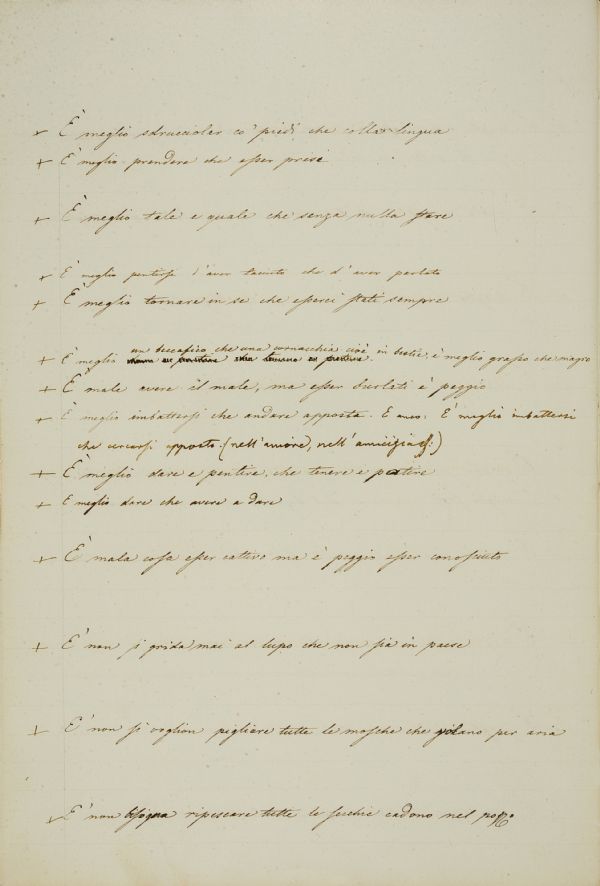 + È meglio sdrucciolar co' piedi che colla lingua
+ È meglio prendere che esser presi
+ È meglio tale e quale che senza nulla stare
+ È meglio pentirsi d'aver taciuto che d'aver parlato
+ È meglio tornare in se che esserci stati sempre
un beccafico che una cornacchia cioè in bestie, è meglio grasso che magro
+ È meglio
+ È male avere il male, ma esser burlati è peggio
+ È meglio imbattersi che andare apposta. E anco: È meglio imbattersi
che cercarsi apposta. (nell'amore, nell'amicizia)
+ È meglio dare e pentire, che tenere e patire
+ È meglio dare che avere a dare
+ È mala cosa esser cattivo ma è peggio esser conosciuto
+ E' non si grida mai al lupo che non sia in paese
+ E' non si voglion pigliare tutte le mosche che volano per aria
+ E' non bisogna ripescare tutte le secchie cadono nel pozzo